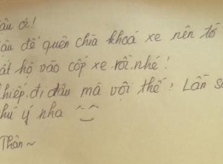 ậu ơi!
ậu để quên chìa khoá xe nên tớ
ất hộ vào cốp xe rồi nhé!
hiếp đi đâu mà vội thế? Lần s
hú ý nha
Thân~